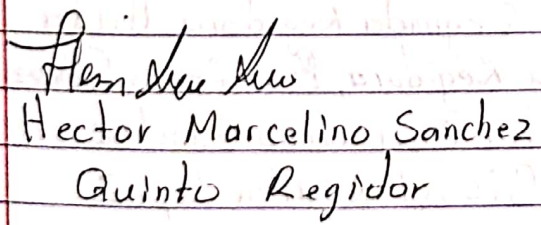 Hector Marcelino Sanchez
Quinto Regidor